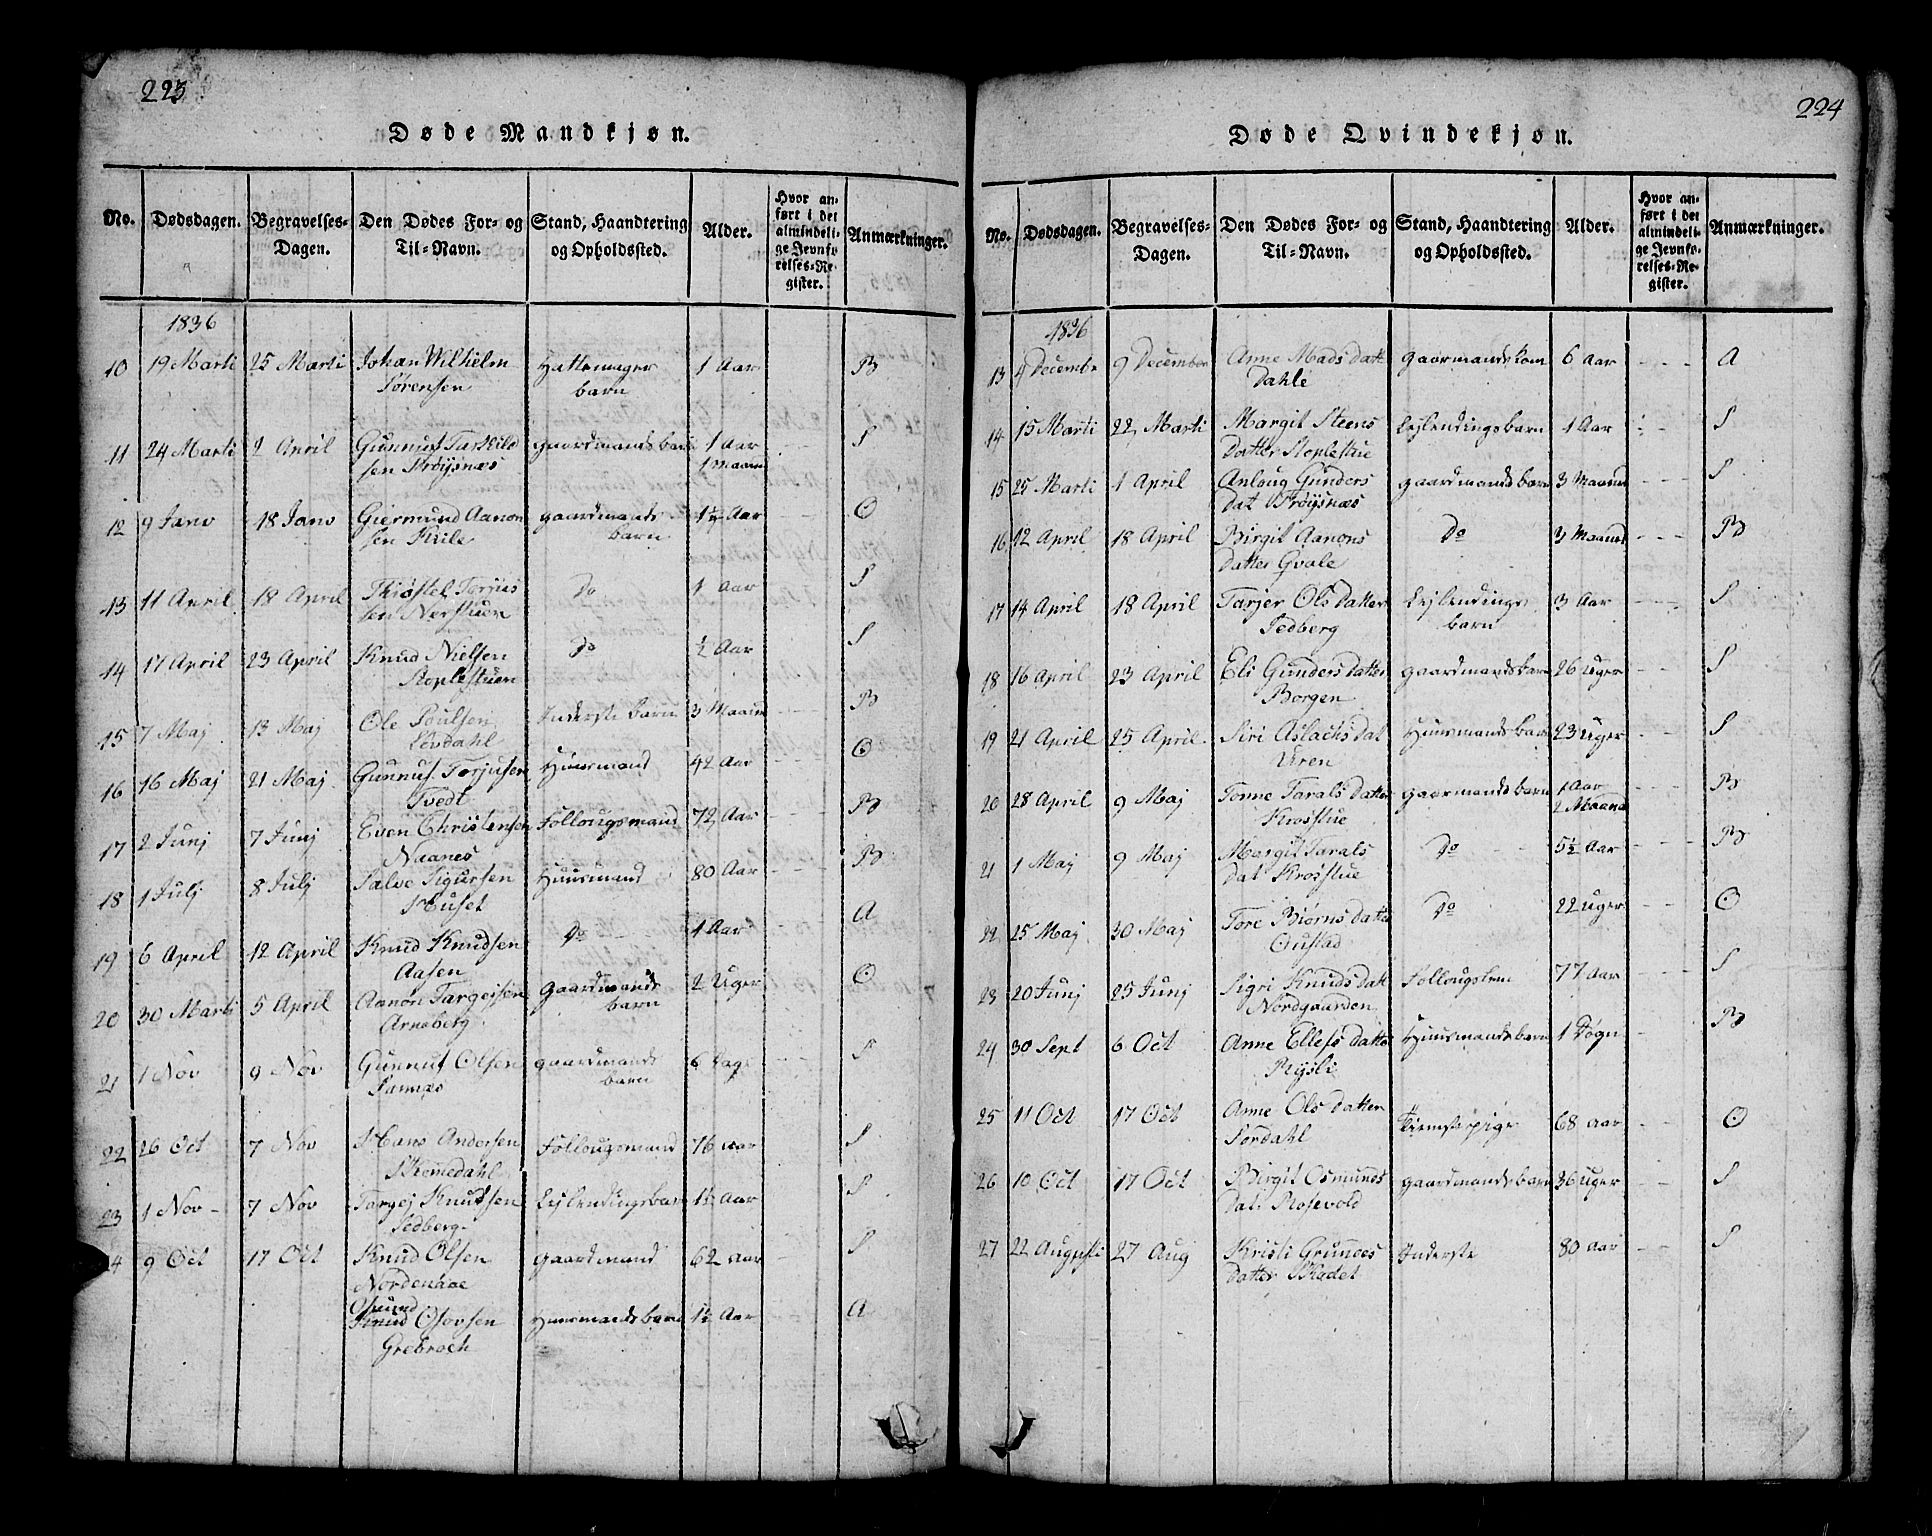 223
Døde Mandkjøn.
No. Dødsdagen. Begravelses-Dagen. Den Dødes For- og Til-Navn. Stand, Haandtering og Opholdssted. Alder. Hvor anført i det almindelige Jevnførelses-Register. Anmærkninger.
1836
10 19 Marti 25 Marti Johan Wilhelm Hattemager 1 Aar B
Sørensen barn
11 24 Marti 2 April Gunnuf Tarkild gaardmands barn 1 Aar S
sen Frøysnæs 1 Maan
12 9 Janv 18 Janv Giermund Aanon gaardmands 1½ Aar O
sen Kvile barn
13 11 April 18 April Thiøstel Torjus Do 1 Aar S
sen Nerstuen
14 17 April 23 April Knud Nielsen Do ½ Aar S
Stoplestuen
15 7 Maj 13 Maj Ole Poulsen Inderste barn 3 Maaned B
Løvdahl
16 16 Maj 21 Maj Gunnuf Torjusen Huusmand 42 Aar O
Tvedt
17 2 Junj 7 Junj Even Christensen Follougsmand 72 Aar B
Naanes
18 1 Julj 8 Julj Salve Sigursen Huusmand 80 Aar B
Huset
19 6 April 12 April Knud Knudsen Do 1 Aar A
Aasen
20 30 Marti 5 April Aanon Targeisen Gaardmands 2 Uger O
Arneberg barn
21 1 Nov 9 Nov Gunnuf Olsen gaardmands 6 Dage S
Sannæs barn
22 26 Oct 7 Nov Hans Andersen Follougsmand 76 aar S
Skomedahl
23 1 Nov 7 Nov Torgej Knudsen Lejlendingsbarn 1½ Aar S
Sedberg
24 9 Oct 17 Oct Knud Olsen gaardmand 62 aar S
Nordenaae
Osmund
Knud Osovsen Huusmands barn 1½ Aar A
Grebroch
224
Døde Qvindekjøn.
No. Dødsdagen. Begravelses-Dagen. Den Dødes For- og Til-Navn. Stand, Haandtering og Opholdssted. Alder. Hvor anført i det almindelige Jevnførelses-Register. Anmærkninger.
1836
13 4 Decembr 9 December Anne Mads datt gaarmands kom 6 aar A
Dahle
14 15 Marti 22 Marti Margit Steens Lejlendingsbarn 1 Aar S
Datter Stoplestue
15 25 Marti 1 April Anloug Gunders gaardmands barn 3 Maaned S
dat Frøysnæs
16 12 April 18 April Birgit Aanons Do 3 Maaned B
datter Qvale
17 14 April 18 April Tarjer Ols datter Lejlendings 3 Aar S
Sedberg barn
18 16 April 23 April Eli Gunders datter gaardmandsbarn 26 Uger S
Borgen
19 21 April 25 April Siri Aslachs dat Huusmands barn 23 Uger S
Uren
20 28 April 9 Maj Tonne Tarals datter gaarmands barn 1 Aar B
Krosstue 2 Maaned
21 1 Maj 9 Maj Margit Tarals Do 5½ Aar B
dat Krosstue
22 25 Maj 30 Maj Tore Biørns datter Do 22 Uger O
Oustad
23 20 Junj 25 Junj Sigri Knuds datt Follougskone 77 aar S
Nordgaarden
24 30 Sept 6 Oct Anne Ellefs datter Huusmands barn 1 Døgn B
Rysli
25 11 Oct 17 Oct Anne Ols datter Tienestepige 68 aar O
Sordahl
26 10 Oct 17 Oct Birgit Osmunds gaardmands barn 36 Uger S
dat. Rosevold
27 22 Augusti 27 Aug Kristi Grunees Inderste 80 aar S
datter Skadet